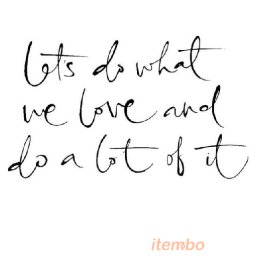 let's do what
we love and
do a lot of it
itembo